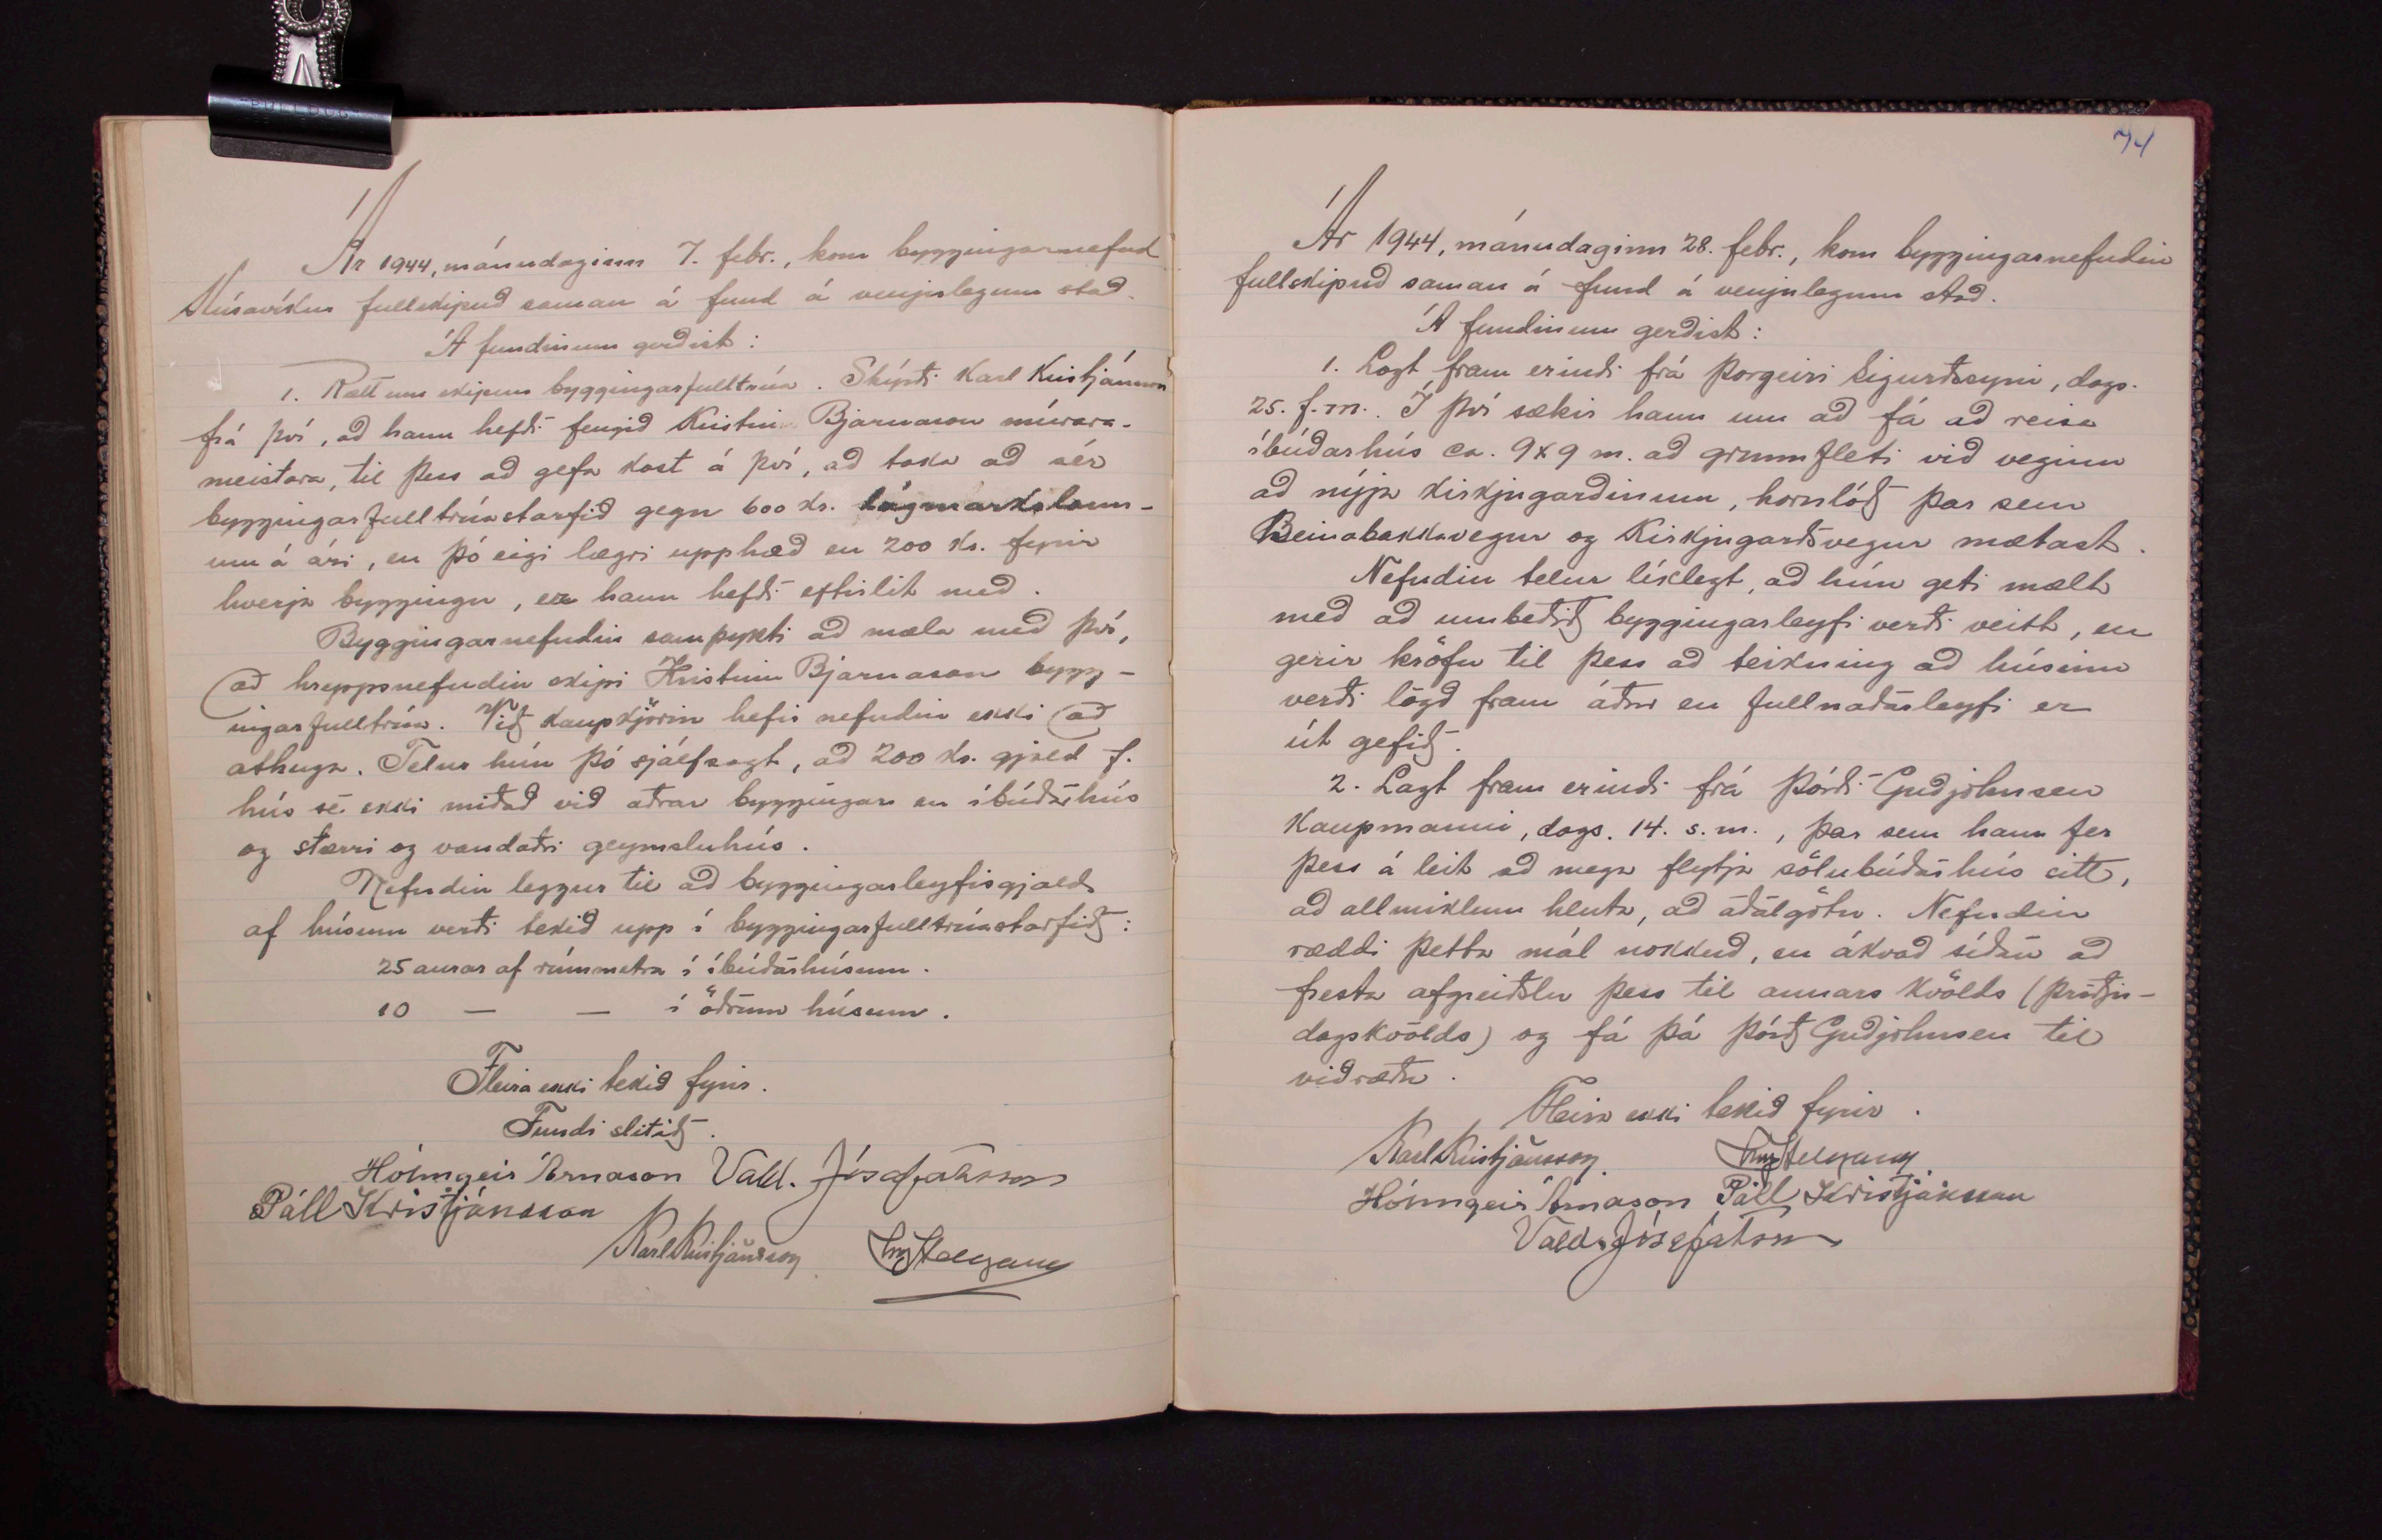 BULLDOG
Ár 1944, mánudaginn 7. febr., kom byggingarnefnd
Húsavíkur fullskipuð saman á fund á venjulegum stað.
Á fundinum gerðist:
1. Rætt um skipun byggingarfulltrúa. Skýrði Karl Kristjánsson
frá því, að hann hefði fengið Kristin Bjarnason múrara-
meistara, til þess að gefa kost á því, að taka að sér
byggingarfulltrúastarfið gegn 600 kr. lágmarkslaun-
um á ári, en þó eigi lægri upphæð en 200 kr. fyrir
hverja byggingu, er hann hefði eftirlit með.
Byggingarnefndin samþykti að mæla með því,
að hreppsnefndin skipi Kristinn Bjarnason bygg-
ingarfulltrúa. Við kaupkjörin hefir nefndin ekki að
athuga. Telur hún þó sjálfsagt, að 200 kr. gjald f.
hús sé ekki miðað við aðrar byggingar en íbúðarhús
og stærri og vandaðri geymsluhús.
Nefndin leggur til að byggingarleyfisgjald
af húsum verði tekið upp í byggingarfulltrúastarfið:
25 aurar af rúmmetra í íbúðarhúsum.
10 — — í öðrum húsum.
Fleira ekki tekið fyrir.
Fundi slitið.
Hólmgeir Árnason Vald. Jósafatsson
Páll Kristjánsson
Karl Kristjánsson
74
Ár 1944, mánudaginn 28. febr., kom byggingarnefndin
fullskipuð saman á fund á venjulegum stað.
Á fundinum gerðist:
1. Lagt fram erindi frá Þorgeiri Sigurðssyni, dags.
25. f.m. Í því sækir hann um að fá að reisa
íbúðarhús ca. 9x9 m. að grunnfleti við veginn
að nýja kirkjugarðinum, hornlóð þar sem
Beinabakkavegur og Kirkjugarðsvegur mætast.
Nefndin telur líklegt, að hún geti mælt
með að umbeðið byggingarleyfi verði veitt, en
gerir kröfu til þess að teikning að húsinu
verði lögð fram áður en fullnaðarleyfi er
út gefið.
2. Lagt fram erindi frá Þórði Guðjohnsen
kaupmanni, dags. 14. s.m., þar sem hann fer
þess á leit að mega flytja sölubúðarhús sitt,
að allmiklum hluta, að aðalgötu. Nefndin
ræddi þetta mál nokkuð, en ákvað síðan að
fresta afgreiðslu þess til annars kvölds (þriðju-
dagskvölds) og fá þá Þórð Guðjohnsen til
viðræðu.
Fleira ekki tekið fyrir.
Karl Kristjánsson
Hólmgeir Árnason Páll Kristjánsson
Vald. Jósafatsson